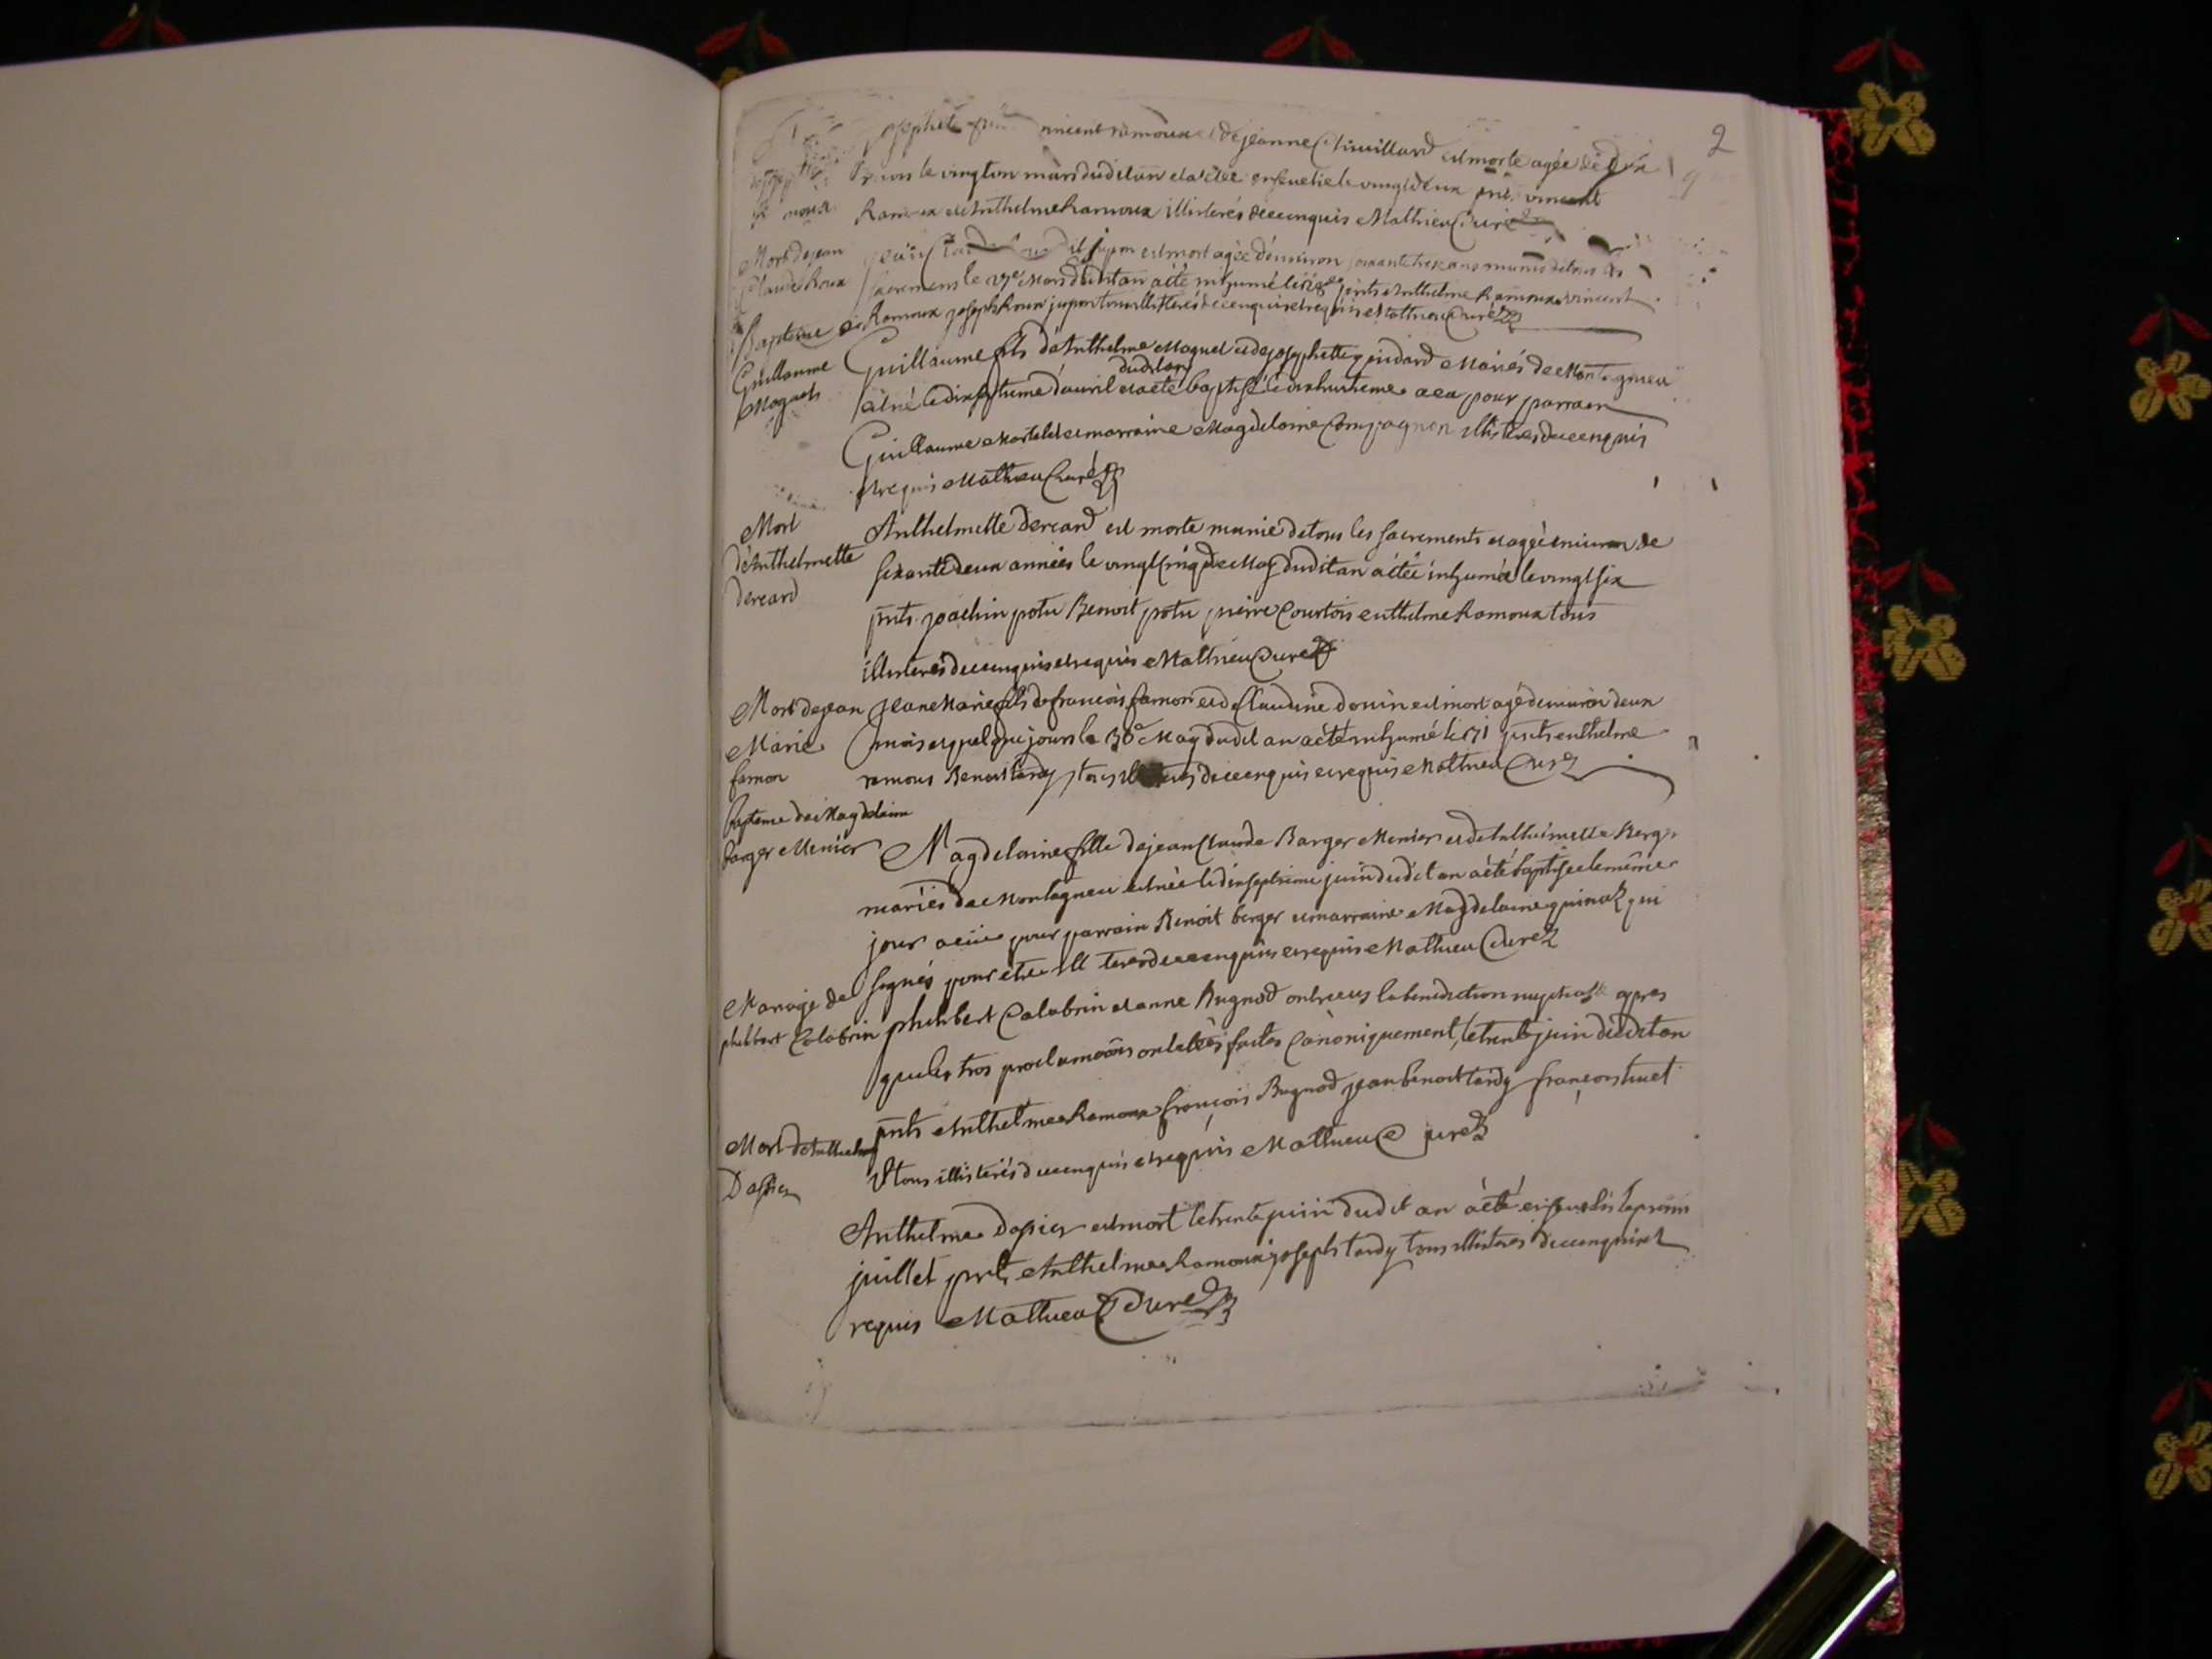 2
vincent ramoux et de jeanne Chuillard est morte agée de
le vingt un mars dudit an et a étée ensevelie le vingt deux pnt vincent
Ramoux et Anthelme Ramoux illisterés de ce enquis Mathieu Curé
Mort de jean
Claude Roux
jean Claude Roux dit jupon est mort agée d'environ soixante treze ans munis de tous les
sacremens le 27e Mars dudit an a été inhumé le 28e pnts Anthelme Ramoux vincent
Ramoux joseph Roux jupon tous illisterés de ce enquis et requis Mathieu Curé
Bapteme de
Guillaume
Moguet
Guillaume fils d'Anthelme Moguet et de josephette guidard Mariés de Montagneu
dudit an
est né le dix septieme d'avril et a été baptisé le dix huitieme a eu pour parrain
Guillaume Martelet et marraine Magdelaine Compagnon illisterés de ce enquis
et requis Mathieu Curé
Mort
d'Anthelmette
dereard
Anthelmette dereard est morte munie de tous les sacrements et agée environ de
sixante deux années le vingt cinq de May dudit an a étée inhumée le vingt six
pnts joachin potu Benoit potu pierre Courtois enthelme Ramoux tous
illisterés de ce enquis et requis Mathieu Curé
Mort de jean
Marie
famon
jean Marie fils de francois famon et de Claudine donin est mort agé d'environ deux
mois et quelque jours le 30e May dudit an a été inhumé le 31 pnts enthelme
ramoux Benoit tardy tous de ce enquis et requis Mathieu Curé
Bapteme de Magdelaine
barger Menier
Magdelaine fille de jean Claude Barger Menier et de Berger
mariés de Montagneu est née le dix septieme juin dudit an a été baptisée le même
jour a eue pour parrain Benoit berger et marraine Magdelaine qui
signés pour être illisteres de ce enquis et requis Mathieu Curé
Mariage de
philibert Calabrin
philibert Calabrin et anne Bugnod ont receus la benediction nuptiale apres
que les trois proclamaons ont étées faites Canoniquement, le trente juin dudit an
pnts Anthelme Ramoux françois Bugnod jean benoit tardy françois
tous illisterés de ce enquis et requis Mathieu Curé
Mort d'Anthelme
Dapier
Anthelme Dapier est mort le trente juin dudit an a été ensevelis le premier
juillet pnts Anthelme Ramoux joseph tardy tous illisterés de ce enquis et
requis Mathieu Curé